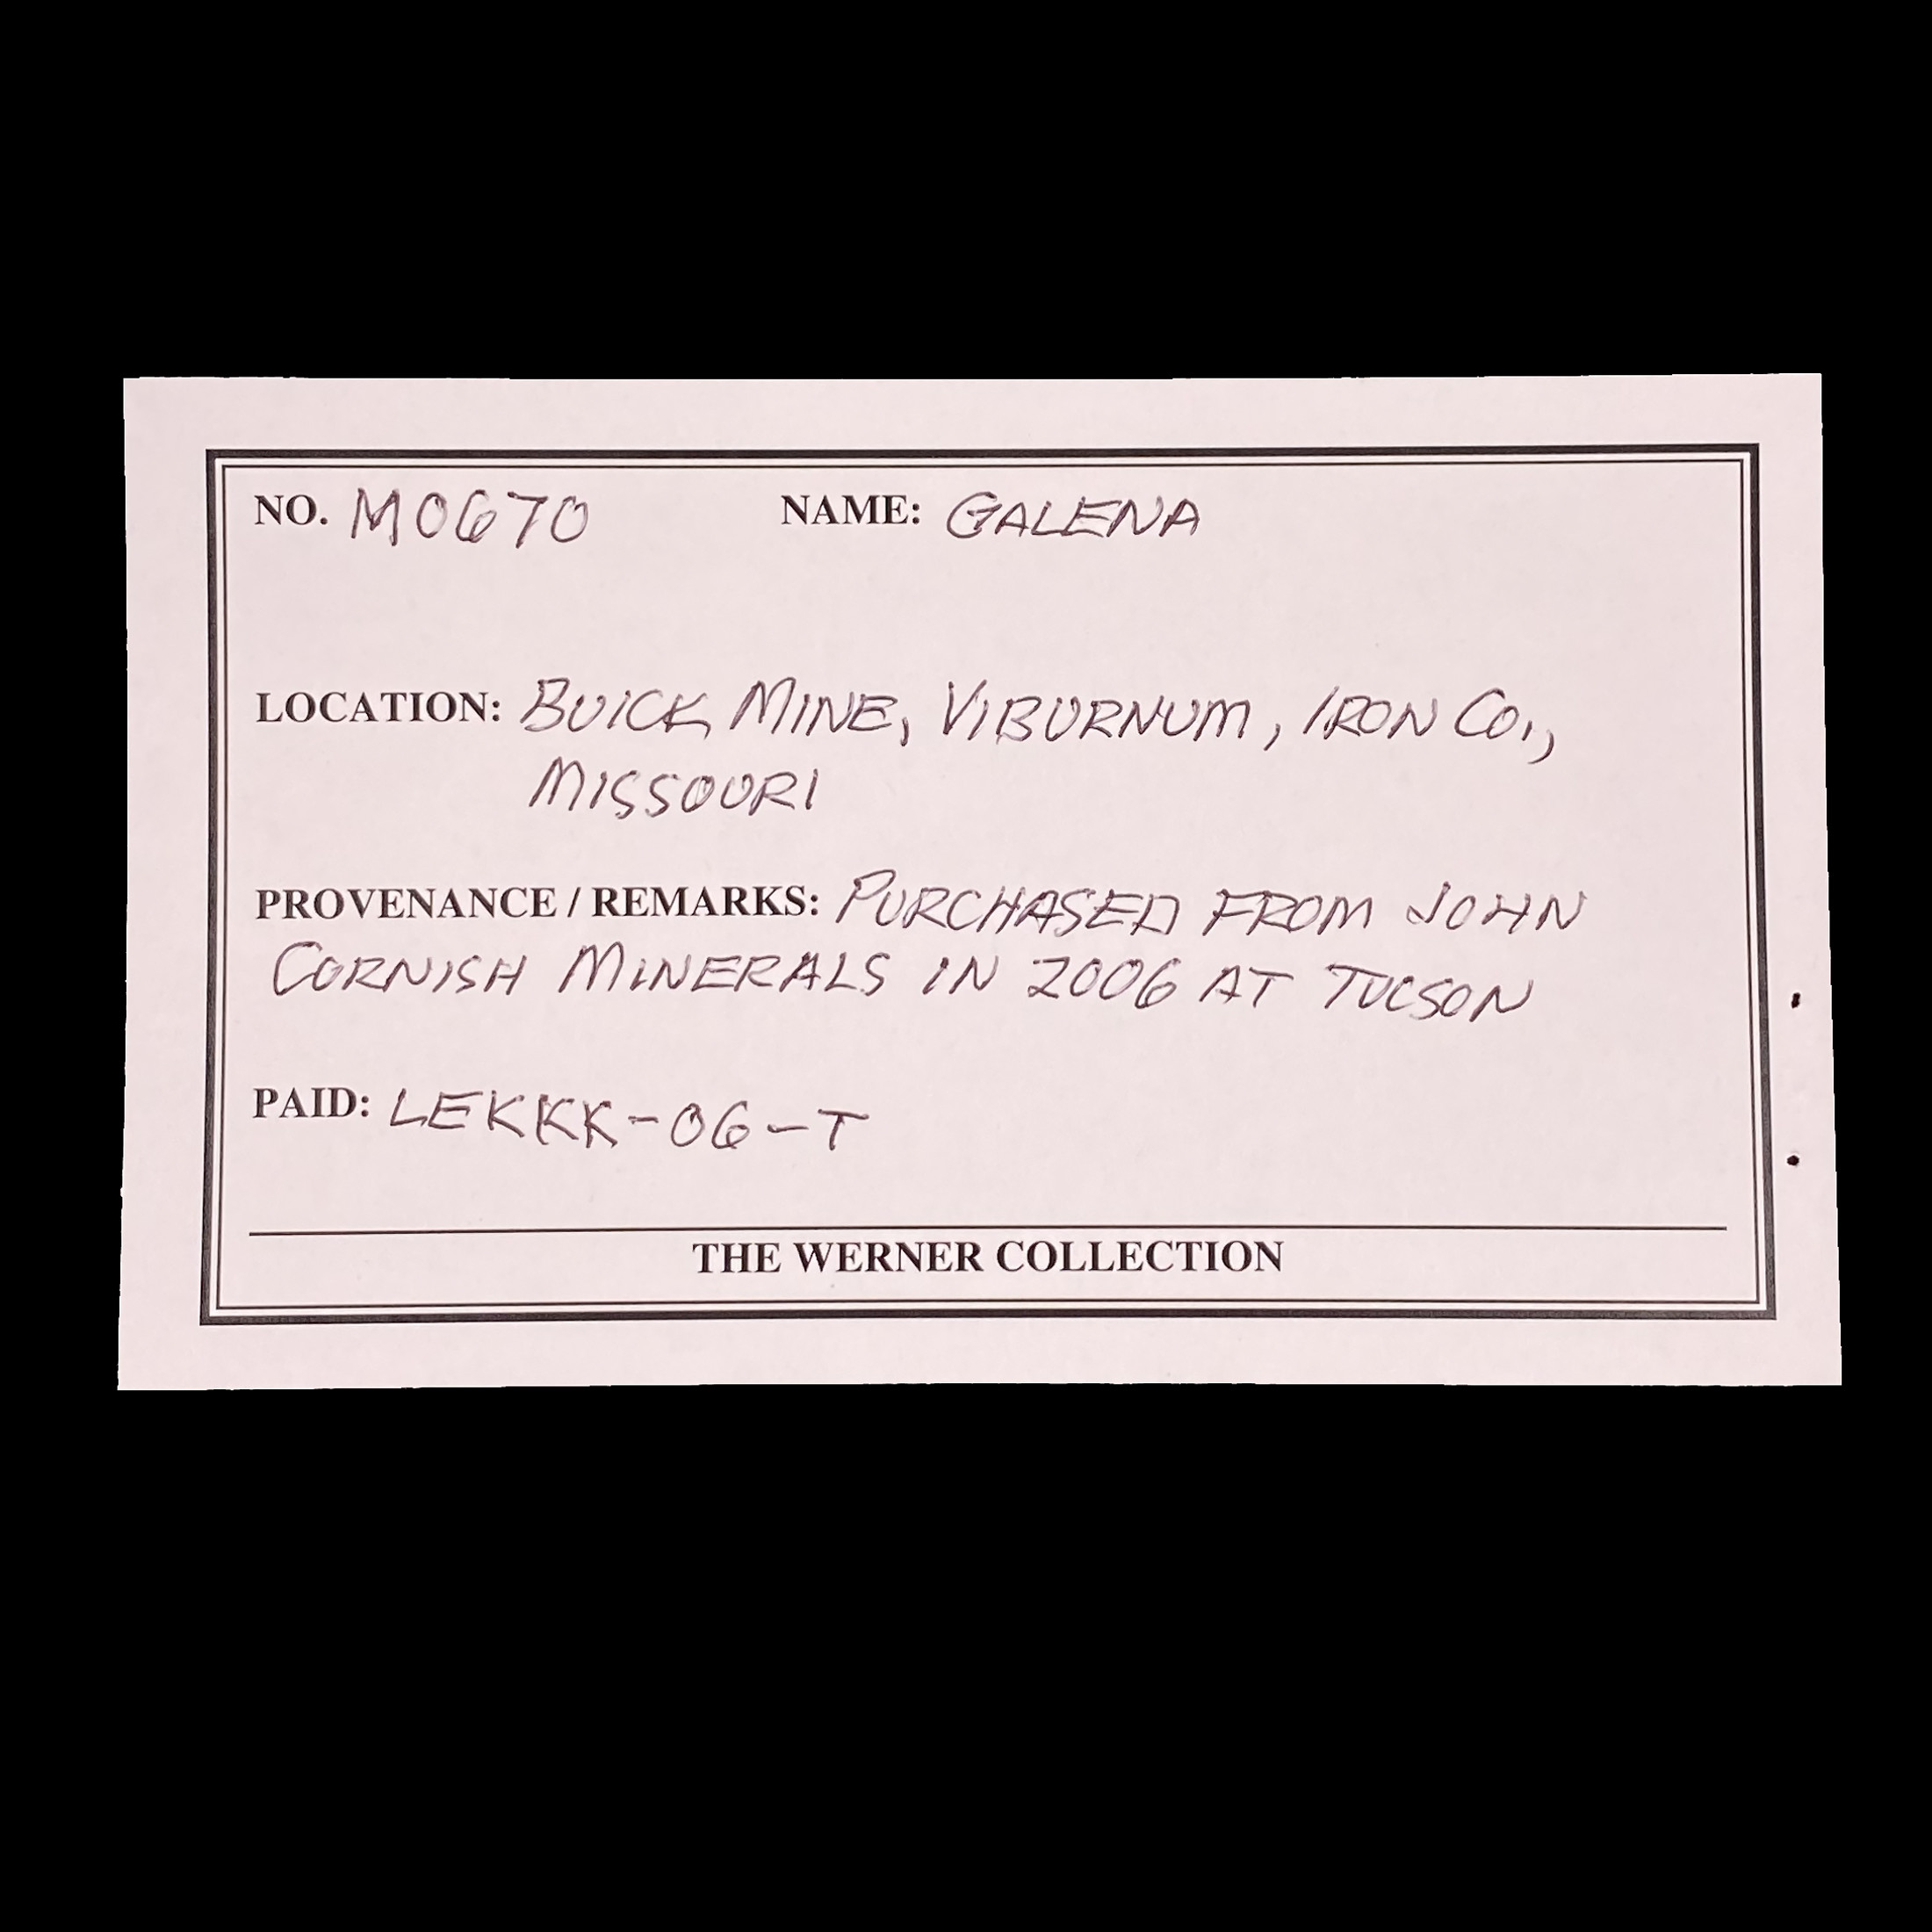 NO. M0670 NAME: GALENA
LOCATION: BUICK MINE, VIBURNUM, IRON CO.,
MISSOURI
PROVENANCE / REMARKS: PURCHASED FROM JOHN
CORNISH MINERALS IN 2006 AT TUCSON
PAID: LEKKK-06-T
THE WERNER COLLECTION